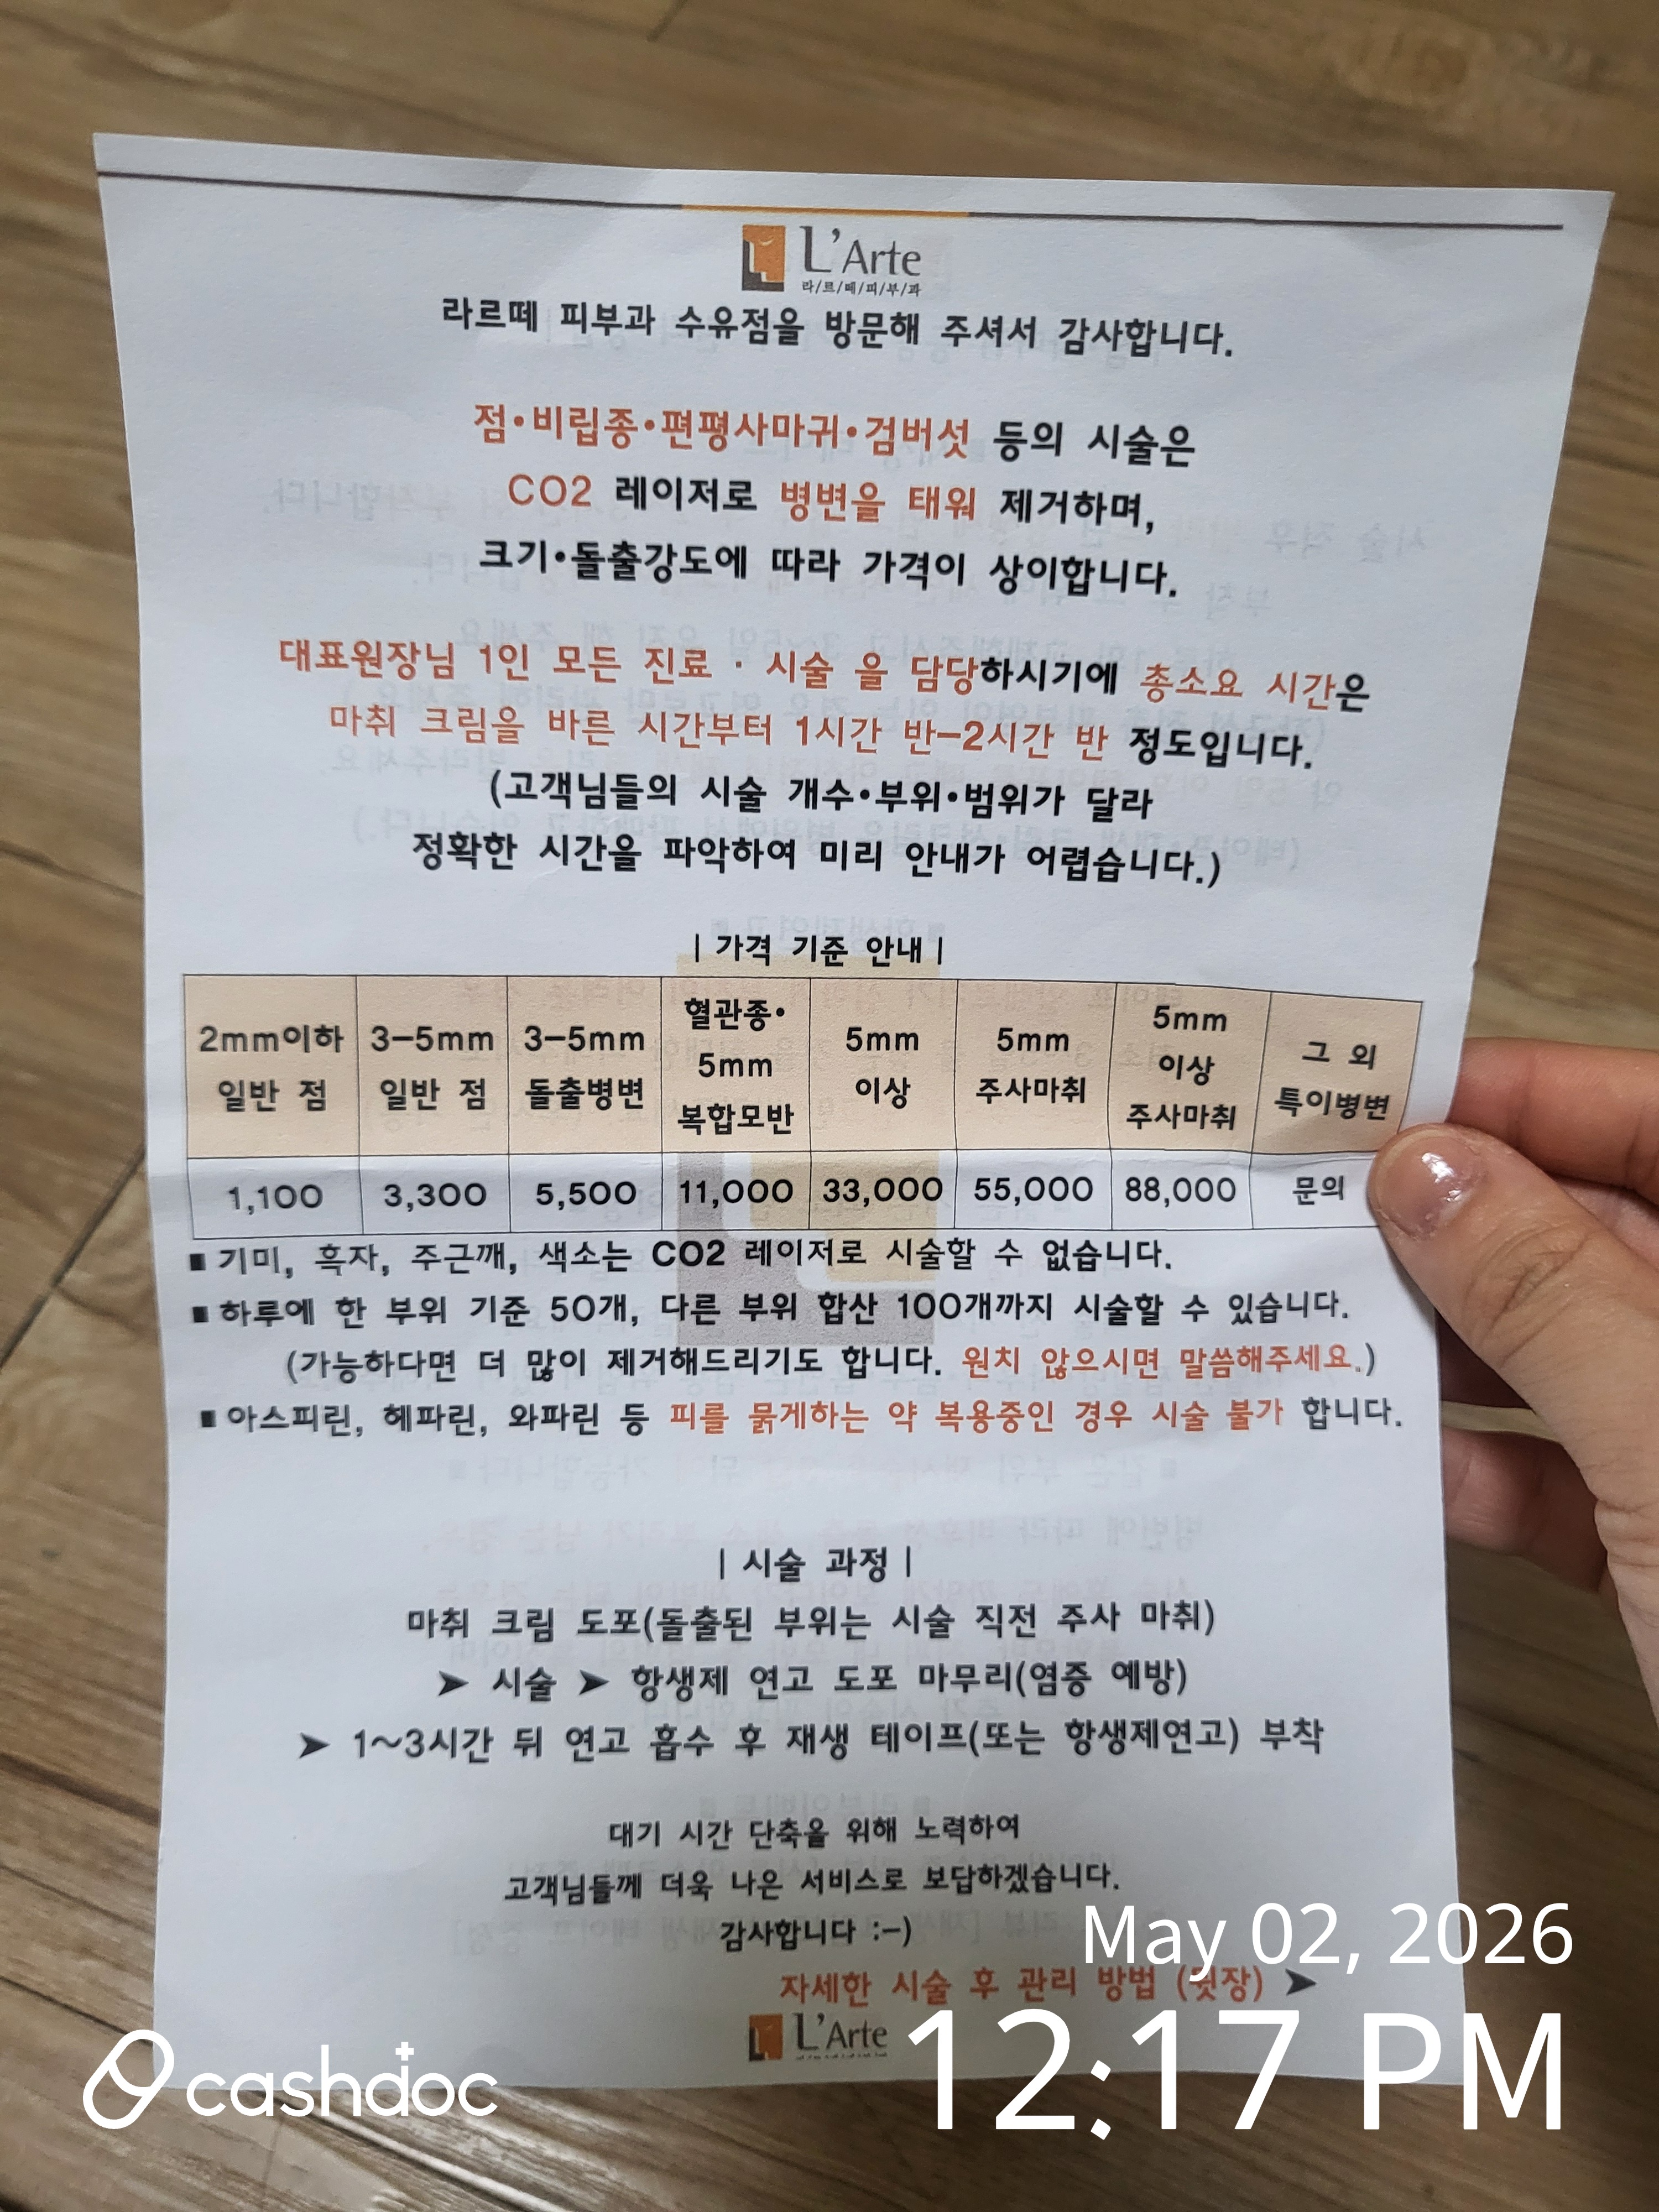 L'Arte
라/르/떼/피/부/과
라르떼 피부과 수유점을 방문해 주셔서 감사합니다.
점•비립종•편평사마귀•검버섯 등의 시술은
CO2 레이저로 병변을 태워 제거하며,
크기•돌출강도에 따라 가격이 상이합니다.
대표원장님 1인 모든 진료 · 시술 을 담당하시기에 총소요 시간은
마취 크림을 바른 시간부터 1시간 반-2시간 반 정도입니다.
(고객님들의 시술 개수•부위•범위가 달라
정확한 시간을 파악하여 미리 안내가 어렵습니다.)
| 가격 기준 안내 |
2mm이하 일반 점 3-5mm 일반 점 3-5mm 돌출병변 혈관종• 5mm 복합모반 5mm 이상 5mm 주사마취 5mm 이상 주사마취 그 외 특이병변
1,100 3,300 5,500 11,000 33,000 55,000 88,000 문의
■ 기미, 흑자, 주근깨, 색소는 CO2 레이저로 시술할 수 없습니다.
■ 하루에 한 부위 기준 50개, 다른 부위 합산 100개까지 시술할 수 있습니다.
(가능하다면 더 많이 제거해드리기도 합니다. 원치 않으시면 말씀해주세요.)
■ 아스피린, 헤파린, 와파린 등 피를 묽게하는 약 복용중인 경우 시술 불가 합니다.
| 시술 과정 |
마취 크림 도포(돌출된 부위는 시술 직전 주사 마취)
➤ 시술 ➤ 항생제 연고 도포 마무리(염증 예방)
➤ 1~3시간 뒤 연고 흡수 후 재생 테이프(또는 항생제연고) 부착
대기 시간 단축을 위해 노력하여
고객님들께 더욱 나은 서비스로 보답하겠습니다.
감사합니다 :-)
자세한 시술 후 관리 방법 (뒷장) ➤
L'Arte
May 02, 2026
12:17 PM
cashdoc